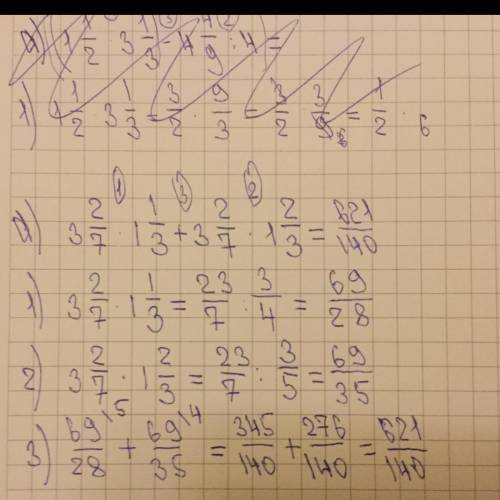 1) 1 1/2 · 3 1/3 = 3/2 · 9/3 = 3/2 = 1/2 · 6
3 2/7 · 1 1/3 + 3 2/7 · 1 2/3 = 621/140
1) 3 2/7 · 1 1/3 = 23/7 · 3/4 = 69/28
2) 3 2/7 · 1 2/3 = 23/7 : 3/5 = 69/35
3) 69/28 \5 + 69/35 \4 = 345/140 + 276/140 = 621/140